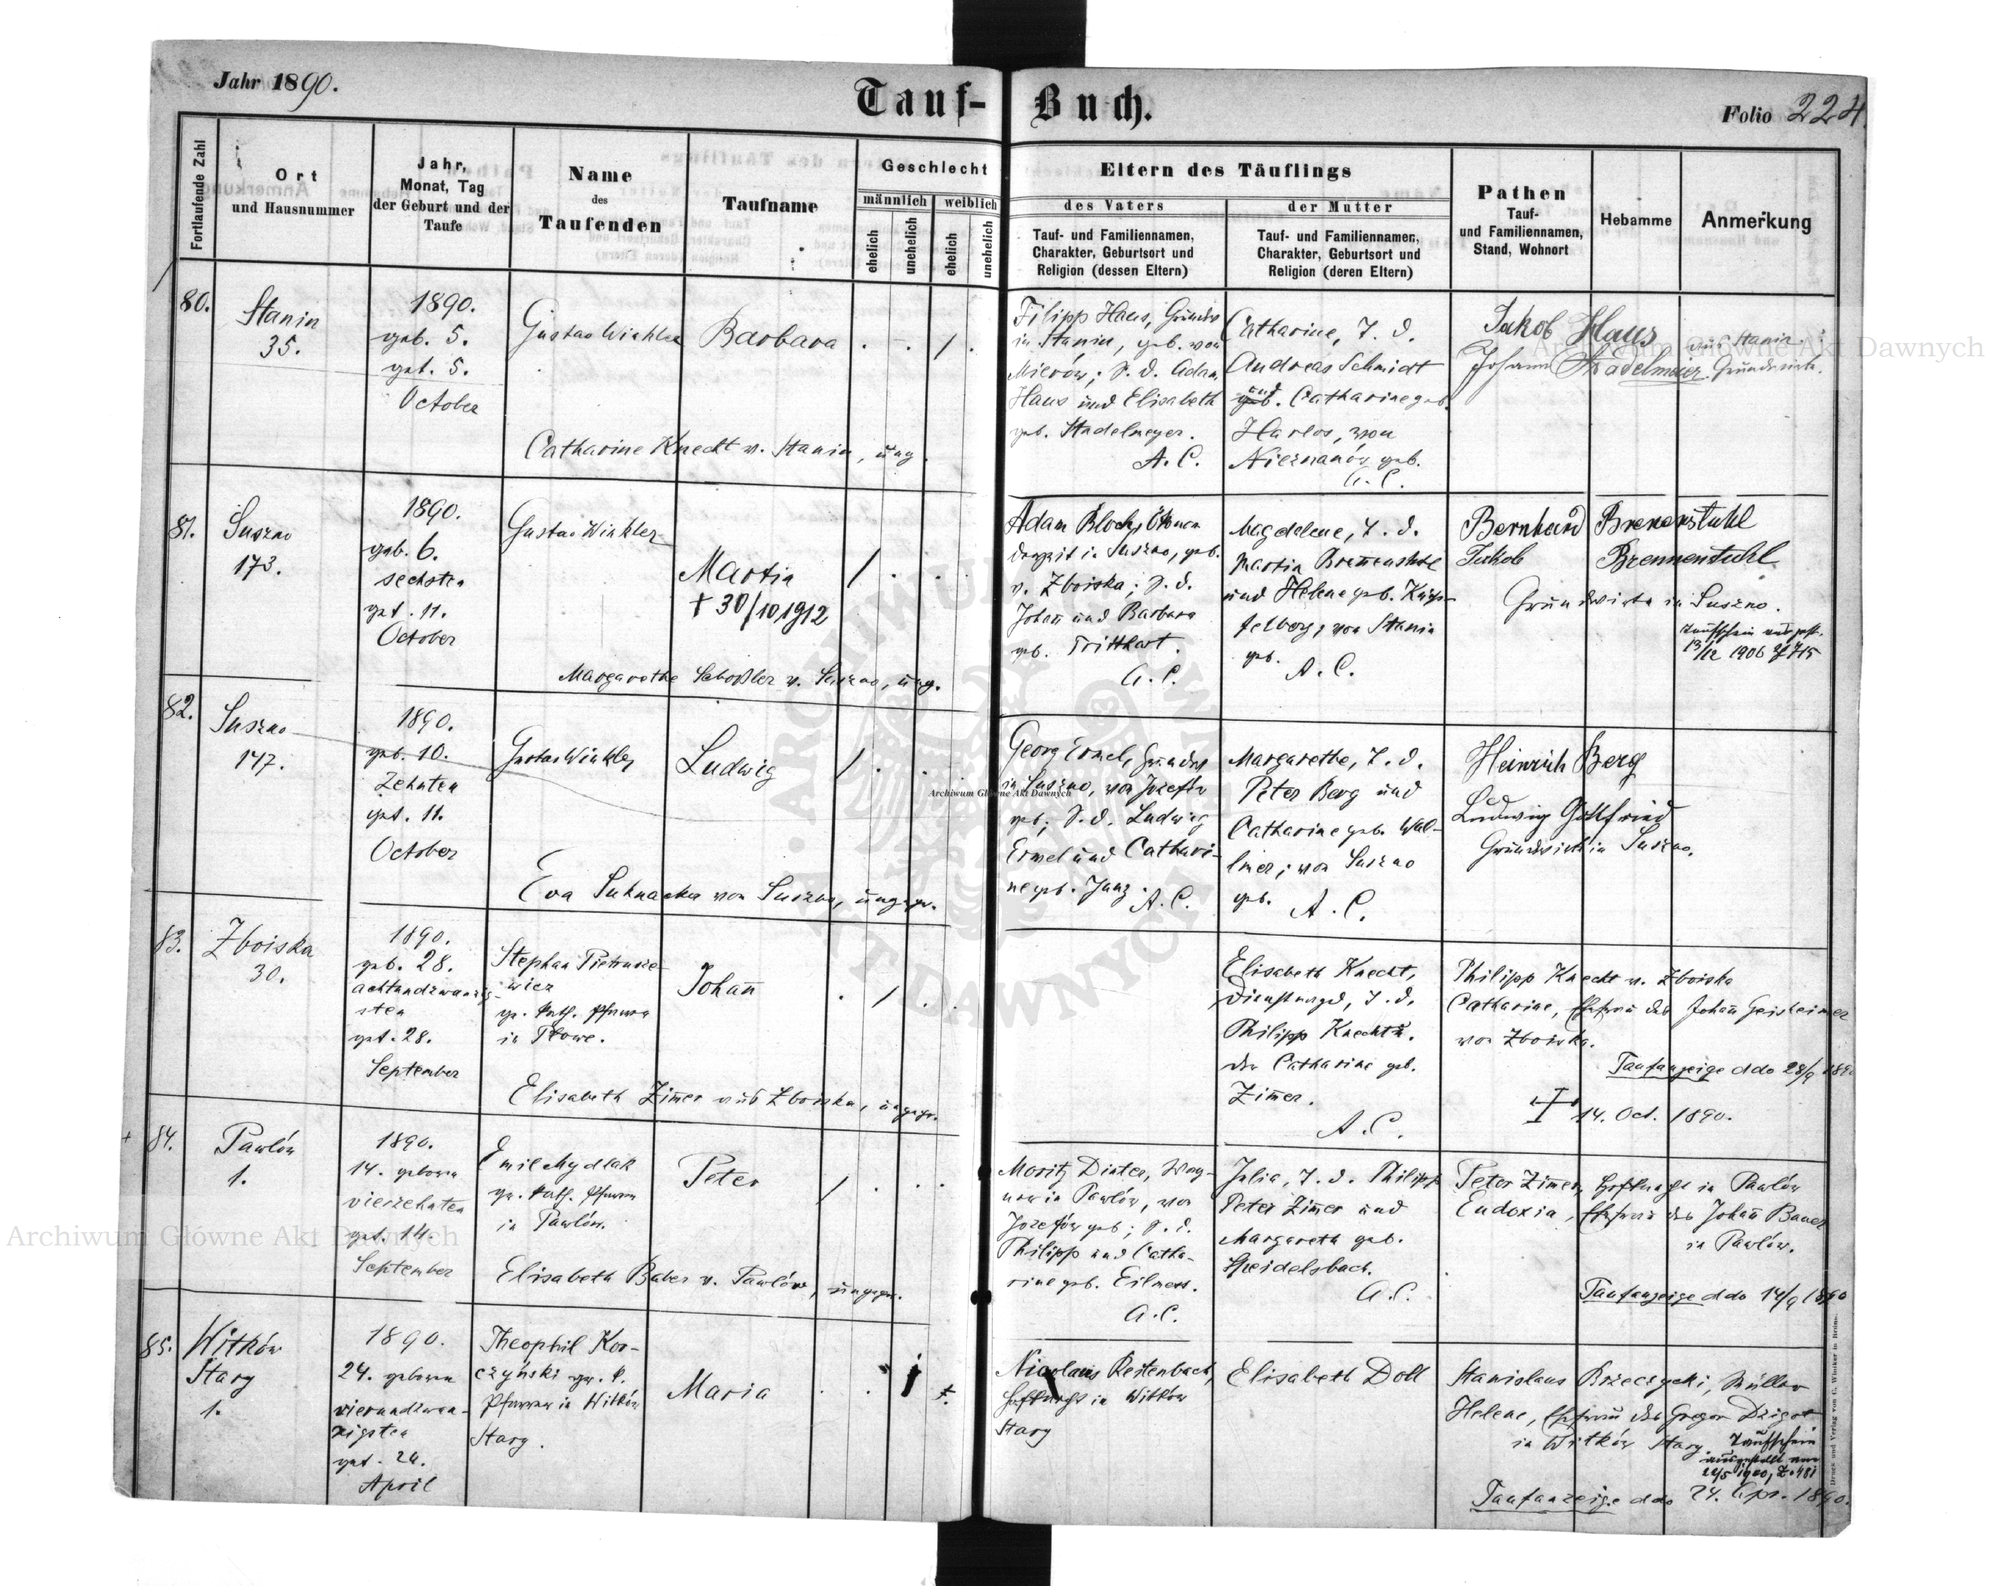 Jahr 1890.
Tauf-Buch.
Folio 224.
Fortlaufende Zahl
Ort
und Hausnummer
Jahr,
Monat, Tag
der Geburt und der
Taufe
Name
des
Taufenden
Taufname
Geschlecht
männlich
weiblich
ehelich
unehelich
ehelich
unehelich
Eltern des Täuflings
des Vaters
Tauf- und Familiennamen,
Charakter, Geburtsort und
Religion (dessen Eltern)
der Mutter
Tauf- und Familiennamen,
Charakter, Geburtsort und
Religion (deren Eltern)
Pathen
Tauf-
und Familiennamen,
Stand, Wohnort
Hebamme
Anmerkung
80.
Stanin
35.
1890.
geb. 5.
get. 5.
October
Gustav Winkler
Barbara
Catharine Knecht v. Stanin, ung.
Filipp Haus, Grundw
in Stanin, geb. von
Mierów; S. d. Adam
Haus und Elisabeth
geb. Stadelmeyer.
A. C.
Catharine, T. d.
Andreas Schmidt
und
geb. Catharine geb.
Harlos, von
Nieznanów geb.
A. C.
Jakob Haus
Johann Stadelmeier
aus Stanin
Grundwirte.
81.
Suszno
173.
1890.
geb. 6.
sechsten
get. 11.
October
Gustav Winkler
Martin
† 30/10 1912
Margarethe Schoßler v. Suszno, ung.
Adam Bloch, Ökonom
in Suszno, geb.
v. Zboiska; S. d.
Johann und Barbara
geb. Tritthart.
A. C.
Magdalene, T. d.
Martin Brennenstuhl
und Helene geb. Küp-
felberg, von Stanin
geb. A. C.
Bernhard Brenenstuhl
Jakob Brennenstuhl
Grundwirte in Suszno.
Taufschein ausgest.
13/12 1906 Zl 715
82.
Suszno
147.
1890.
geb. 10.
Zehnten
get. 11.
October
Gustav Winkler
Ludwig
Eva Suknacka von Suszno, ungepr.
Georg Ermel, Grundw
in Suszno, von Józefów
geb; S. d. Ludwig
Ermel und Cathari-
ne geb. Jung.
A. C.
Margarethe, T. d.
Peter Berg und
Catharine geb. Wal-
lner; von Suszno
geb. A. C.
Heinrich Berg
Ludwig Gottfried
Grundwirte in Suszno.
83.
Zboiska
30.
1890.
geb. 28.
achtundzwanzig-
sten
get. 28.
September
Stephan Pietrusie-
wicz
gr. kath. Pfarrer
in Płowe.
Johann
Elisabeth Zimer aus Zboiska, ungepr.
Elisabeth Knecht,
Dienstmagd, T. d.
Philipp Knecht u.
der Catharine geb.
Zimer.
A. C.
Philipp Knecht v. Zboiska
Catharine, Ehefrau des Johann Geisheimer
von Zboiska.
Taufanzeige ddo 28/9 1890
14. Oct. 1890.
84.
Pawlów
1.
1890.
14. geboren
vierzehnten
get. 14.
September
Emil Mydlak
gr. kath. Pfarrer
in Pawlów.
Peter
Elisabeth Baber v. Pawlów, ungepr.
Moritz Dinter, Wag-
ner in Pawlów, von
Józefów geb; S. d.
Philipp und Catha-
rine geb. Eilmess.
A. C.
Julia, T. d. Philipp
Peter Zimer und
Margareth geb.
Heidelsbach.
A. C.
Peter Zimer, Hofknecht in Pawlów
Eudoxia, Ehefrau des Johann Bauer
in Pawlów.
Taufanzeige ddo 14/9 1890
85.
Witków
Stary
1.
1890.
24. geboren
vierundzwan-
zigsten
get. 24.
April
Theophil Kor-
czyński gr. k.
Pfarrer in Witków
Stary.
Maria
Nicolaus Reitenbach,
Hofknecht in Witków
Stary
Elisabeth Doll
Stanislaus Brzeczycki, Müller
Helene, Ehefrau des Gregor Dzigot
in Witków Stary.
Taufschein
ausgestellt am
22/5 1900, Z. 481
Taufanzeige ddo 24. Apr. 1890.
Druck und Verlag von C. Winiker in Brünn.
Archiwum Główne Akt Dawnych
Archiwum Główne Akt Dawnych
Archiwum Główne Akt Dawnych